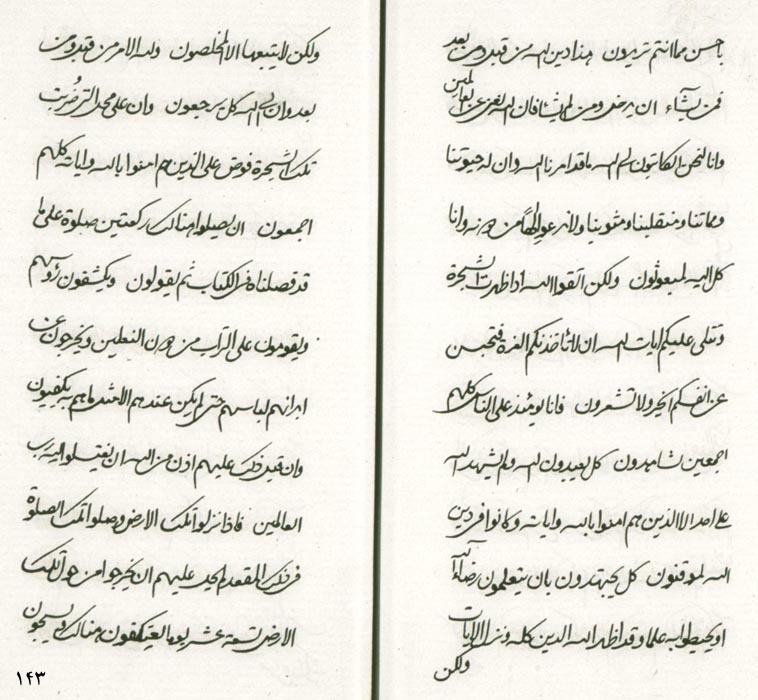 باحسن مما انتم تريدون هذا دين الله من قبل ومن بعد
فمن يشاء ان يرضى ومن لم يشأ فان الله لغنى عن العالمين
وانا لنحن الكاتبون لم الله ما قد امرنا الله وان له حيوتنا
ومماتنا ومنقلبنا ومثوينا ولا ندعو الها من دونه وانا
كل اليه لمبعوثون ولكن اتقوا الله اذا ظهرت الشجرة
وتتلى عليكم ايات الله ان لا تأخذنكم الغرة فتحجبن
عن انفسكم الخير ولا تشعرون فانا يومئذ على الناس كلهم
اجمعين شاهدون كل يعبدون الله ولم يشهد الله
على احد الا الذين هم امنوا بالله واياته وكانوا فى دين
الله لموقنون كل يجتهدون بان يتعلمون رضاء الله
او يحيطوا به علما وقد اظهر الله الدين كله ونزل الايات
ولكن
ولكن لا يتبعها الا المخلصون ولله الامر من قبل ومن
بعد وان الى الله كل يرجعون وان على محل التى ضربت
تلك الشجرة فرض على الذين هم امنوا بالله واياته كلهم
اجمعون ان يصلوا هنالك ركعتين صلوة على ما
قد فصلناه فى الكتاب ثم يقولون ويكشفون رؤسهم
ويقومون على التراب من دون النعلين ويخرجون عن
ابدانهم لباسهم حتى لم يكن عندهم الا شىء ما هم به يكفيون
وان قبل ذلك عليهم اذن من الله ان يغتسلوا لله رب
العالمين فاذا نزلوا تلك الارض وصلوا تلك الصلوة
فى ذلك المقعد لم يحل عليهم ان يخرجوا من حول تلك
الارض تسعة عشر يوما ليعتكفون هنالك ويسبحون
۱۴۳